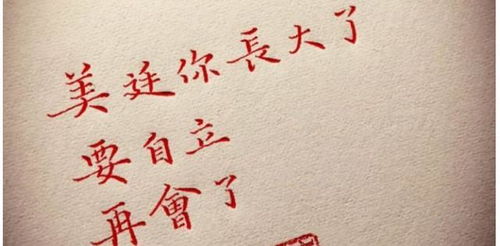 美廷你長大了
要自立
再會了